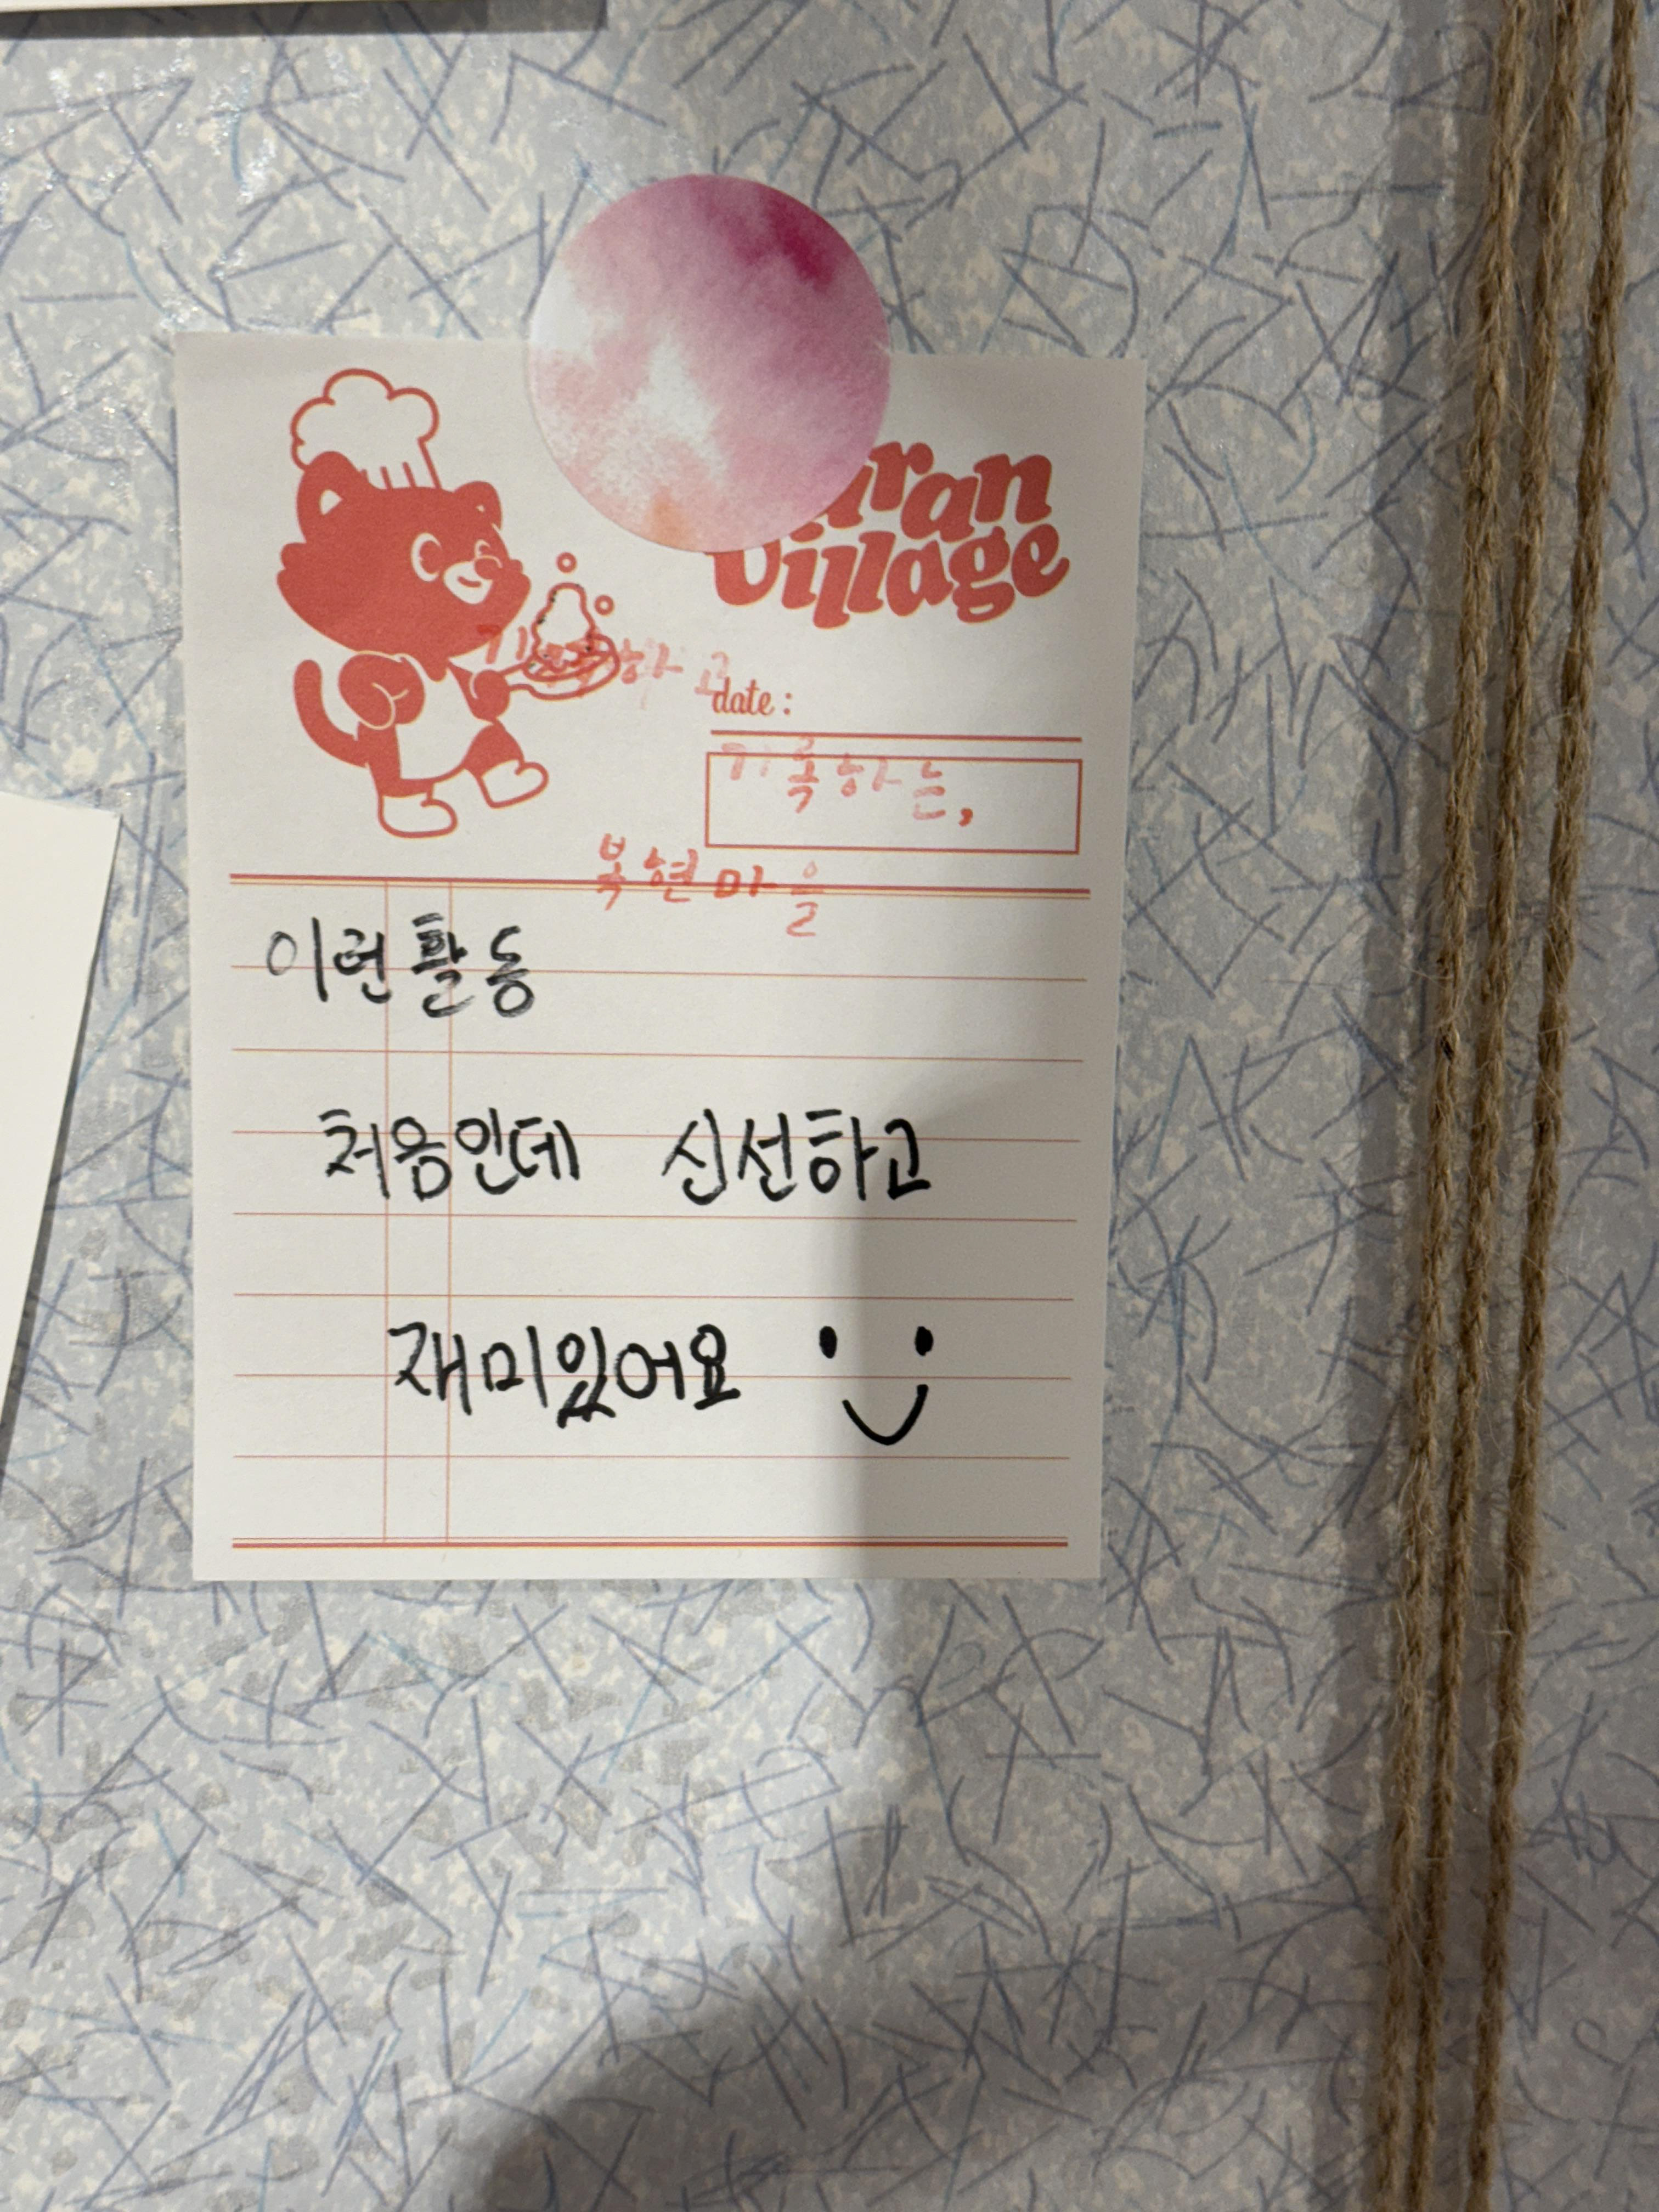 Village
date :
기록하는,
복현마을
이런 활동
처음인데 신선하고
재미있어요